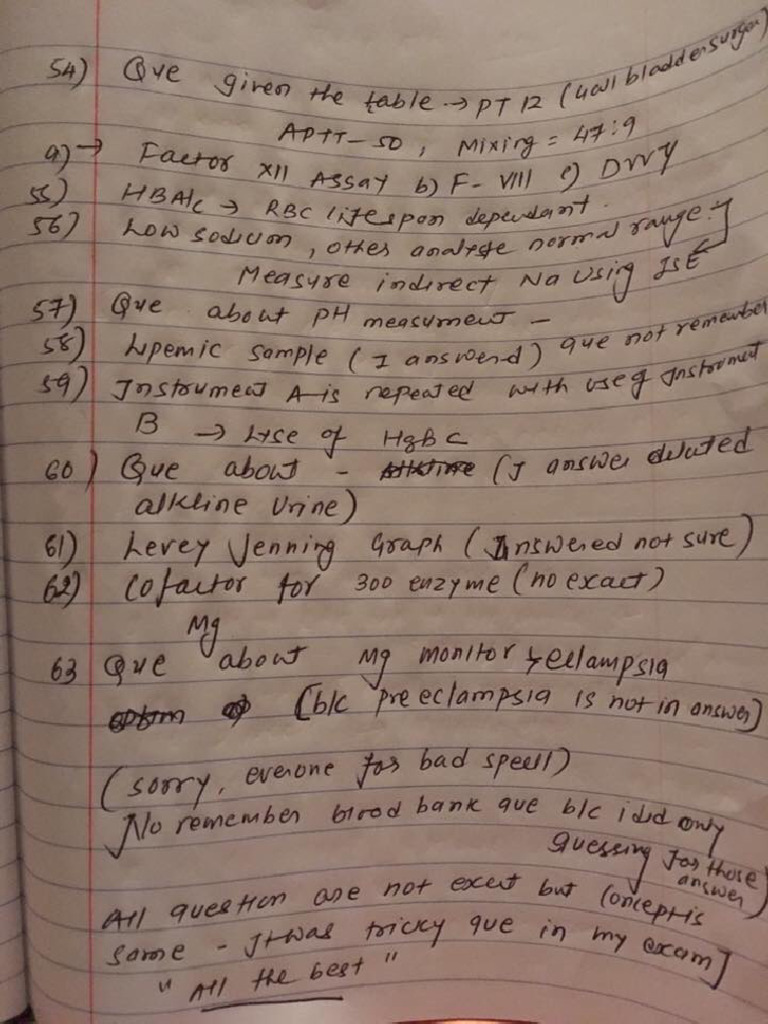 54) Que given the table → PT 12 (Gall bladder surgen)
APTT-50, Mixing = 47:9
a) → Factor XII Assay b) F-VIII c) DrvvY
55) HBA1c → RBC lifespan dependant.
56) Low sodium, other analyte normal range.
Measure indirect Na using ISE
57) Que about PH measument -
58) Lipemic sample (I answered) que not remember
59) Instrument A is repeated with use of Instrument
B → Use of HgBc
60) Que about - (I answer deluted
alkline Urine)
61) Levey Jenning Graph (Answered not sure)
62) Cofactor for 300 enzyme (no exact)
Mg
63 Que about Mg monitor → eclampsia
[b/c preeclampsia is not in answer]
(sorry, everone for bad spell)
No remember blood bank que b/c i did only
guessing for those
answer)
All question are not exect but concept is
same - It was tricky que in my exam]
" All the best "